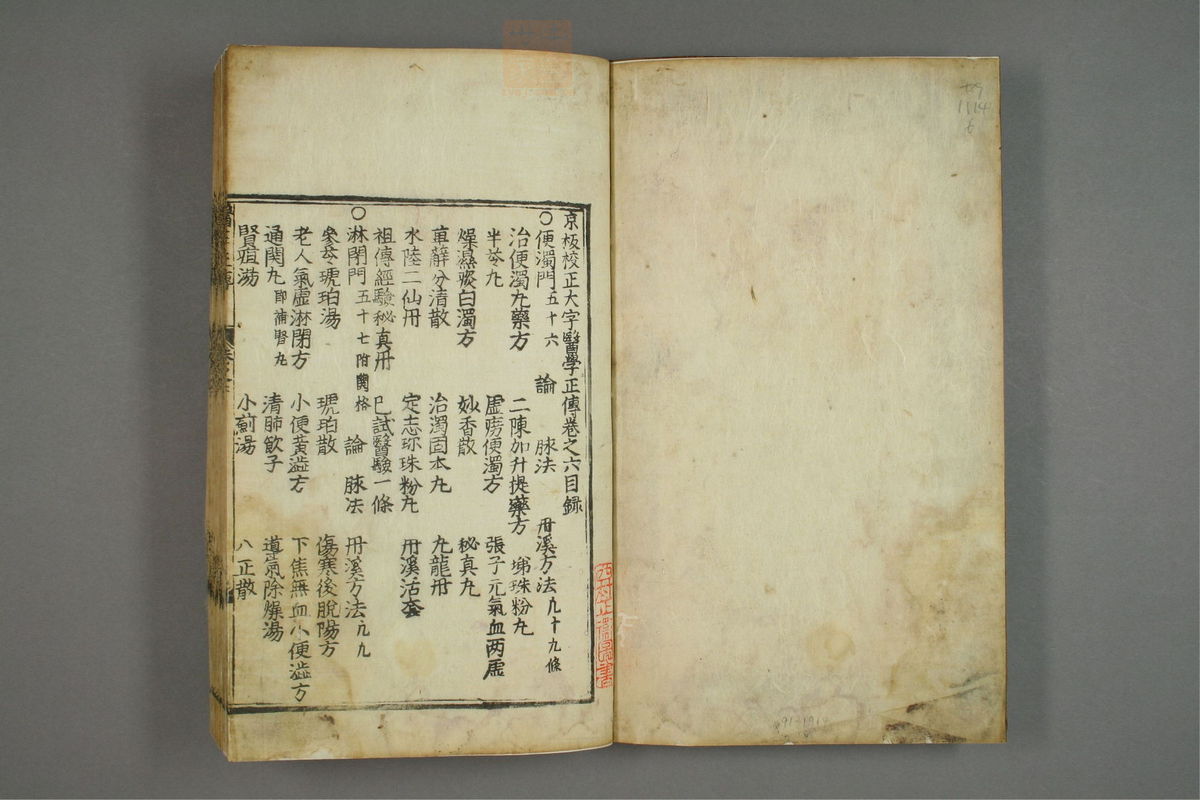 京板校正大字醫學正傳卷之六目録
○便濁門五十六 論 脉法 丹溪方法凢十九條
治便濁九藥方 二陳加升提藥方 㻛珠粉丸
半苓丸 虛癆便濁方 張子元氣血两虛
燥濕痰白濁方 妙香散 秘真丸
萆薢分清散 治濁固本丸 九龍丹
水陸二仙丹 定志珎珠粉丸 丹溪活套
祖傳經驗秘真丹 已試醫驗一條
○淋閉門五十七附関格 論 脉法 丹溪方法凢九
參苓琥珀湯 琥珀散 傷寒後脫陽方
老人氣虛淋閉方 小便黃澁方 下焦無血小便澁方
通関丸即滋腎丸 清肺飲子 導氣除燥湯
腎疸湯 小薊湯 八正散